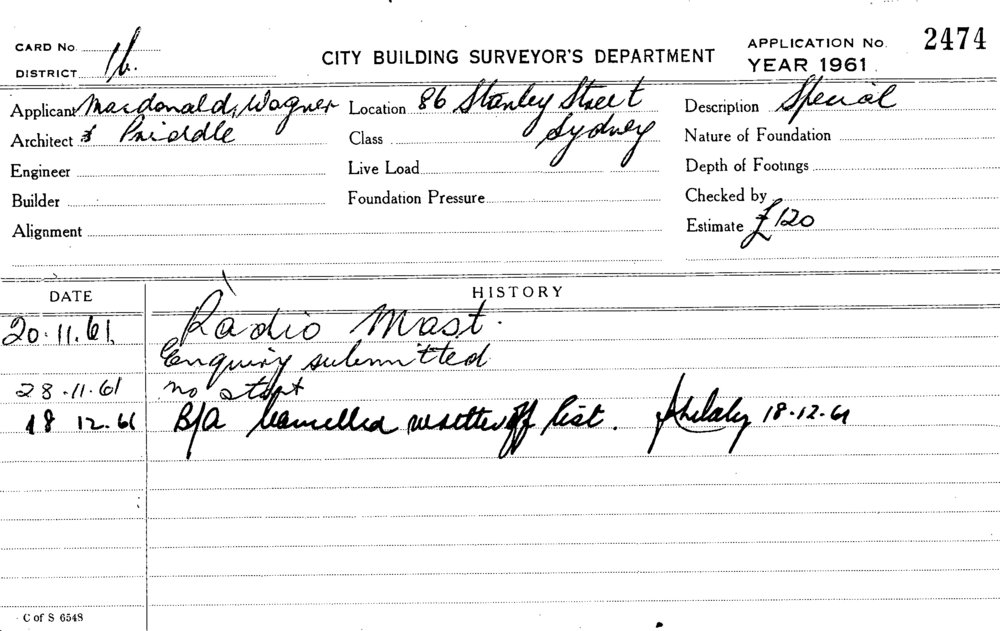 CARD No. 1b.
DISTRICT
CITY BUILDING SURVEYOR'S DEPARTMENT
APPLICATION No. 2474
YEAR 1961
Applicant Macdonald, Wagner
Location 86 Stanley Street
Description Special
Architect & Priddle
Class Sydney
Nature of Foundation
Engineer
Live Load
Depth of Footings
Builder
Foundation Pressure
Checked by
Alignment
Estimate £120
DATE
HISTORY
20.11.61. Radio Mast.
Enquiry submitted
28.11.61 no start
18 12.61 B/A Cancelled off list. 18.12.61
C of S 6548